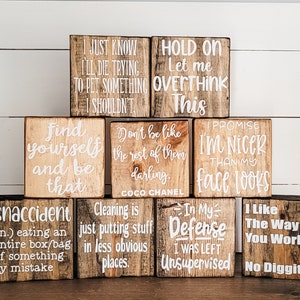 I JUST KNOW
I'LL DIE TRYING
TO PET SOMETHING
I SHOULDN'T
HOLD ON
Let me
OVERTHINK
This
find
yourself
and be
that
Don't be like
the rest of them
darling.
COCO CHANEL
I PROMISE
I'M NICER
THAN MY
FACE LOOKS
snaccident
n.) eating an
entire box/bag
of something
by mistake
Cleaning is
just putting stuff
in less obvious
places.
In My
Defense
I WAS LEFT
Unsupervised
I Like
The Way
You Work
No Diggit